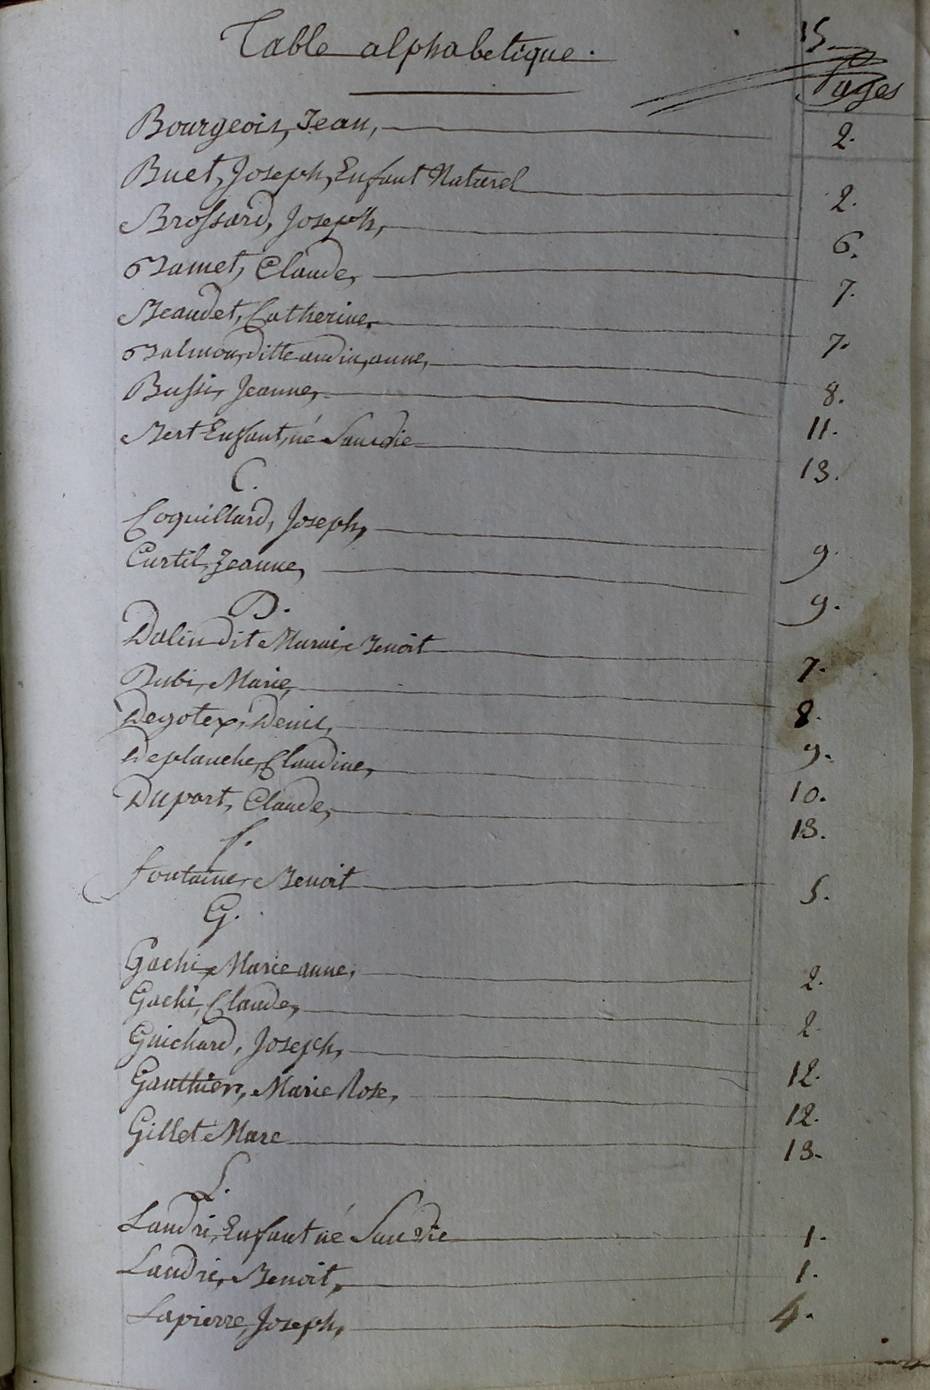 Table alphabetique.
15
Pages
Bourgeois, Jean, 2.
Buet, Joseph, Enfant Naturel 2.
Brossard, Joseph, 6.
Bamet, Claude, 7.
Beaudet, Catherine, 7.
Balmon, ditte audin, anne, 8.
Bussi, Jeanne, 11.
Bert Enfant, né Sans vie 13.
C.
Coquillard, Joseph, 9.
Curtil, Jeanne, 9.
D.
Dalin dit Marai, Benoit 7.
Dubi, Marie, 8.
Degotex, Denis, 9.
Deplanche, Claudine, 10.
Dupart, Claude, 13.
f.
fontaine, Benoit 5.
G.
Gachi, Marie anne, 2.
Gachi, Claude, 2.
Guichard, Joseph, 12.
Gauthier, Marie Rose, 12.
Gillet Marc 13.
L.
Landri, Enfant né Sans vie 1.
Landri, Benoit, 1.
Lapierre, Joseph, 4.